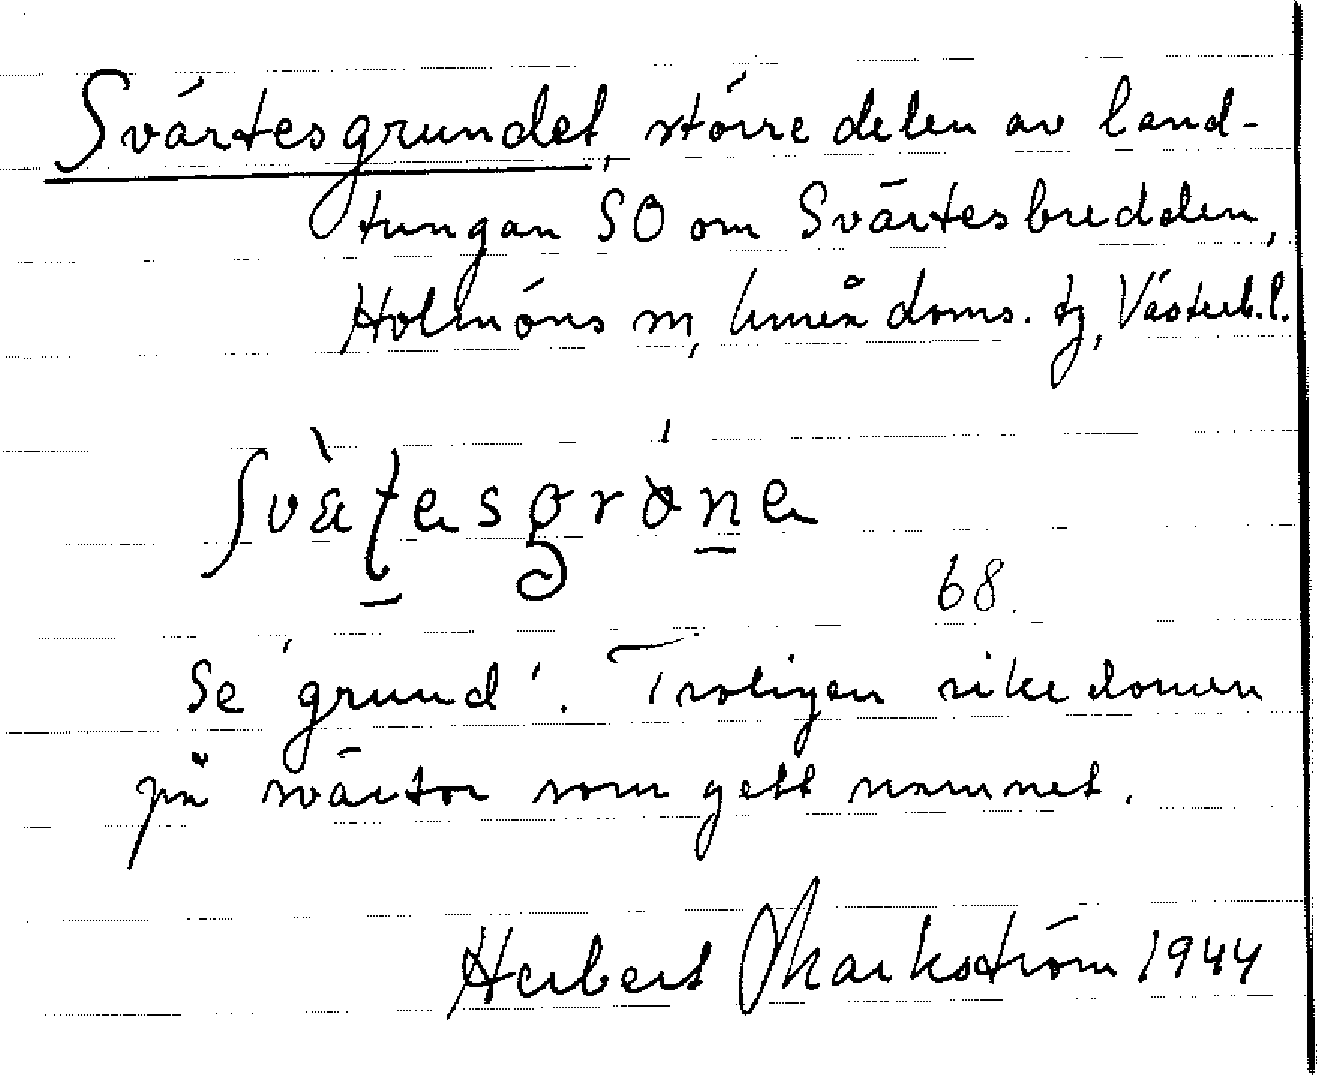 Svärtesgrundet, större delen av land-
tungan SO om Svärtesbredden,
Holmöns sn, Umeå doms. tg, Västerb.l.
Svätesgrone
68.
Se 'grund'. Troligen rikedomen
på svärtor som gett namnet.
Herbert Markström 1944